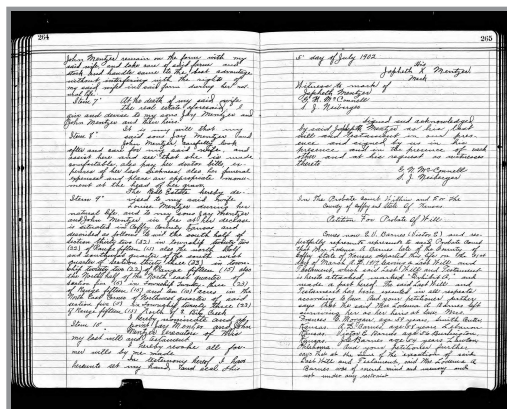 264
John Mentzer remain on the farm with my
said wife and take care of said farm and
stock and handle same to the best advantage
without interfering with the rights of
my said wife in said farm during her nat
ural life.
Item 7" At the death of my said wife
the real estate aforesaid, I
give and devise to my sons Jay Mentzer and
John Mentzer and their heirs.
Item 8" It is my will that my
said sons Jay Mentzer and
John Mentzer carefully look
after and care for my said wife and
assist her and see that she is made
comfortable also pay her doctor bills ex-
penses of her last sickness also her funeral
expenses and place an appropriate monu-
ment at the head of her grave.
Item 9" The Real Estate hereby de-
vised to my said wife
Louise Mentzer during her
natural life and to my sons Jay Mentzer
and John Mentzer in fee at her decease
is situated in Coffey County Kansas and
described as follows to wit the south half of
section thirty two (32) in township twenty two
(22) of Range fifteen (15) also the
and southwest quarter of the south west
quarter of section thirty three (33) in town-
ship twenty two (22) of Range fifteen (15) also
the North half of the North east quarter of
section five (5) in Township twenty three (23)
of Range fifteen (15) and ten (10) acres in the
North East Corner of Northwest quarter of sec-
tion five (5) in township twenty three (23)
of Range fifteen (15) North of Big Creek
Item 10" I hereby nominate and ap-
point Jay Mentzer and John
Mentzer executors of this
my last will and testament
I hereby revoke all for-
mer wills by me made
In testimony hereof I have
hereunto set my hand and seal this
265
5" day of July 1902
His
Japheth X Mentzer
Mark
Witness to mark of
Japheth Mentzer
G. N. McConnell
S. J.
Signed and acknowledged
by said Japheth Mentzer as his last
will and testament in our pres-
ence and signed by us in his
presence and in the presence of each
other and at his request as witnesses
thereto
G. N. McConnell
S. J.
In the Probate Court Within and For the
County of Coffey and State of Kansas
Petition For Probate Of Will
Comes now and re-
spectfully represents to said Probate Court
that Mrs Lodema A Barnes late of the County of
Coffey State of Kansas departed this life on the
day of March A.D. leaving a last Will and
Testament, which said Last Will and Testament
is hereto attached marked "Exhibit A" and
made a part hereof. The said Last Will and
Testament has been executed in all respects
according to law. And your petitioner further
says that the said Mrs Lodema A Barnes left
surviving her as her heirs at law Mrs
Morgan, age years, South
Kansas. Barnes age years
Kansas. age years
Kansas. Barnes age years Lawton
Oklahoma. And your petitioner further
says that at the time of the execution of said
Last Will and Testament, said Mrs Lodema A
Barnes was of sound mind and memory and
not under any restraint